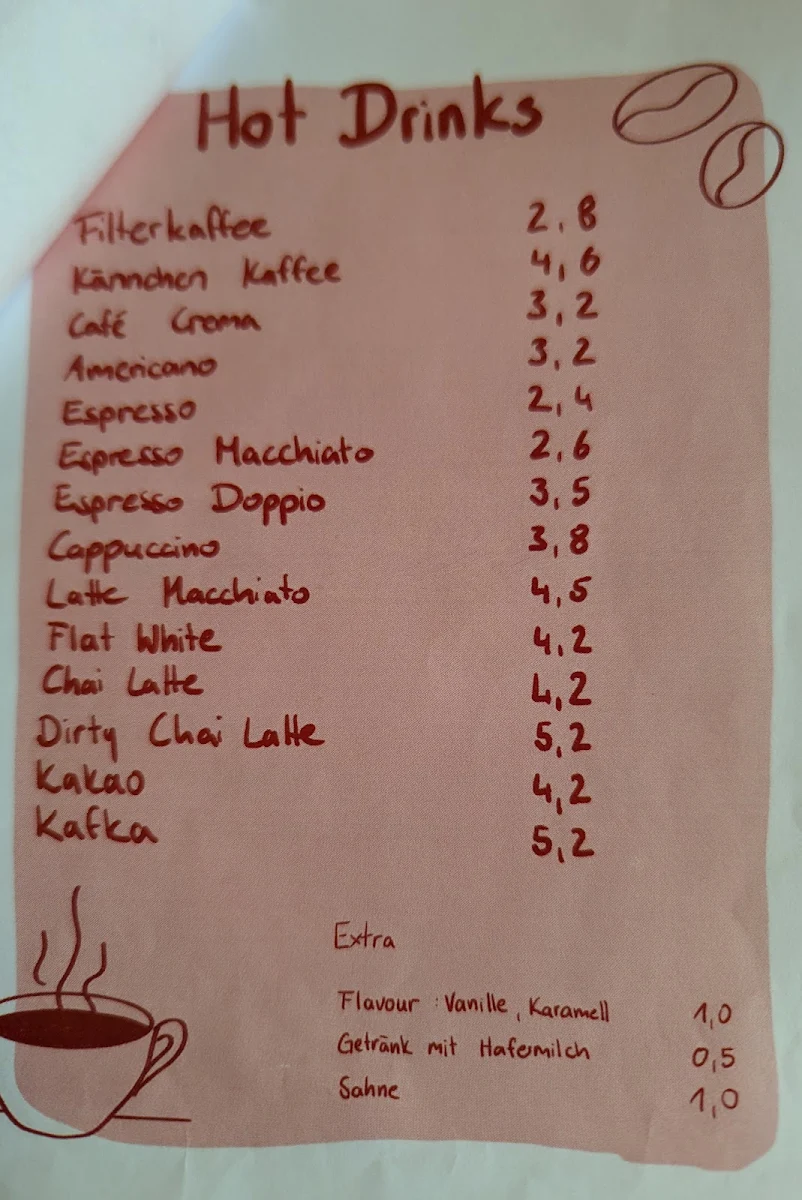 Hot Drinks
Filterkaffee 2,8
Kännchen Kaffee 4,6
Café Crema 3,2
Americano 3,2
Espresso 2,4
Espresso Macchiato 2,6
Espresso Doppio 3,5
Cappuccino 3,8
Latte Macchiato 4,5
Flat White 4,2
Chai Latte 4,2
Dirty Chai Latte 5,2
Kakao 4,2
Kafka 5,2
Extra
Flavour : Vanille, Karamell 1,0
Getränk mit Hafermilch 0,5
Sahne 1,0